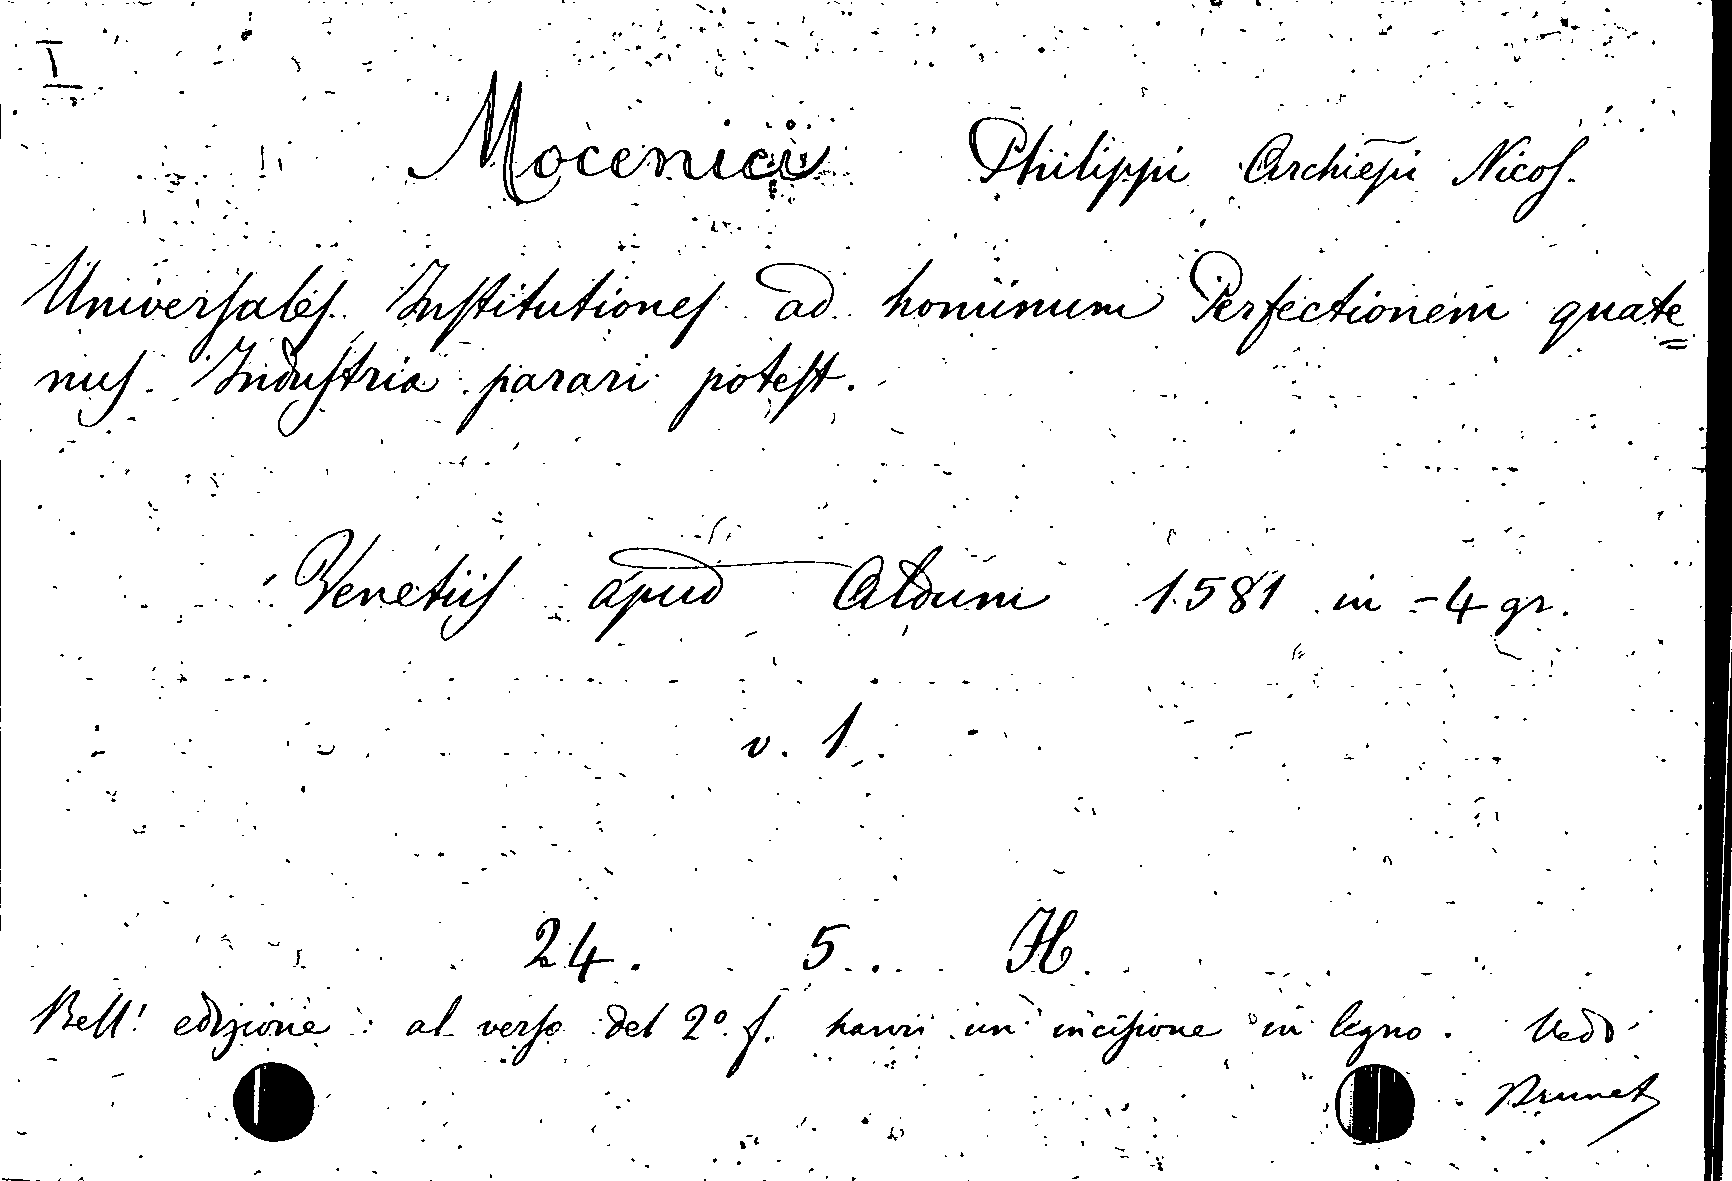 I
Mocenici Philippi Archiepi Nicos.
Universales Institutiones ad hominum Perfectionem quate=
nus Industria parari potest.
Venetiis apud Aldum 1581 in-4 gr.
v. 1.
24. 5... H.
Bell' edizione: al verso del 2º. f. havvi un' incisione in legno. Vedi
Brunet